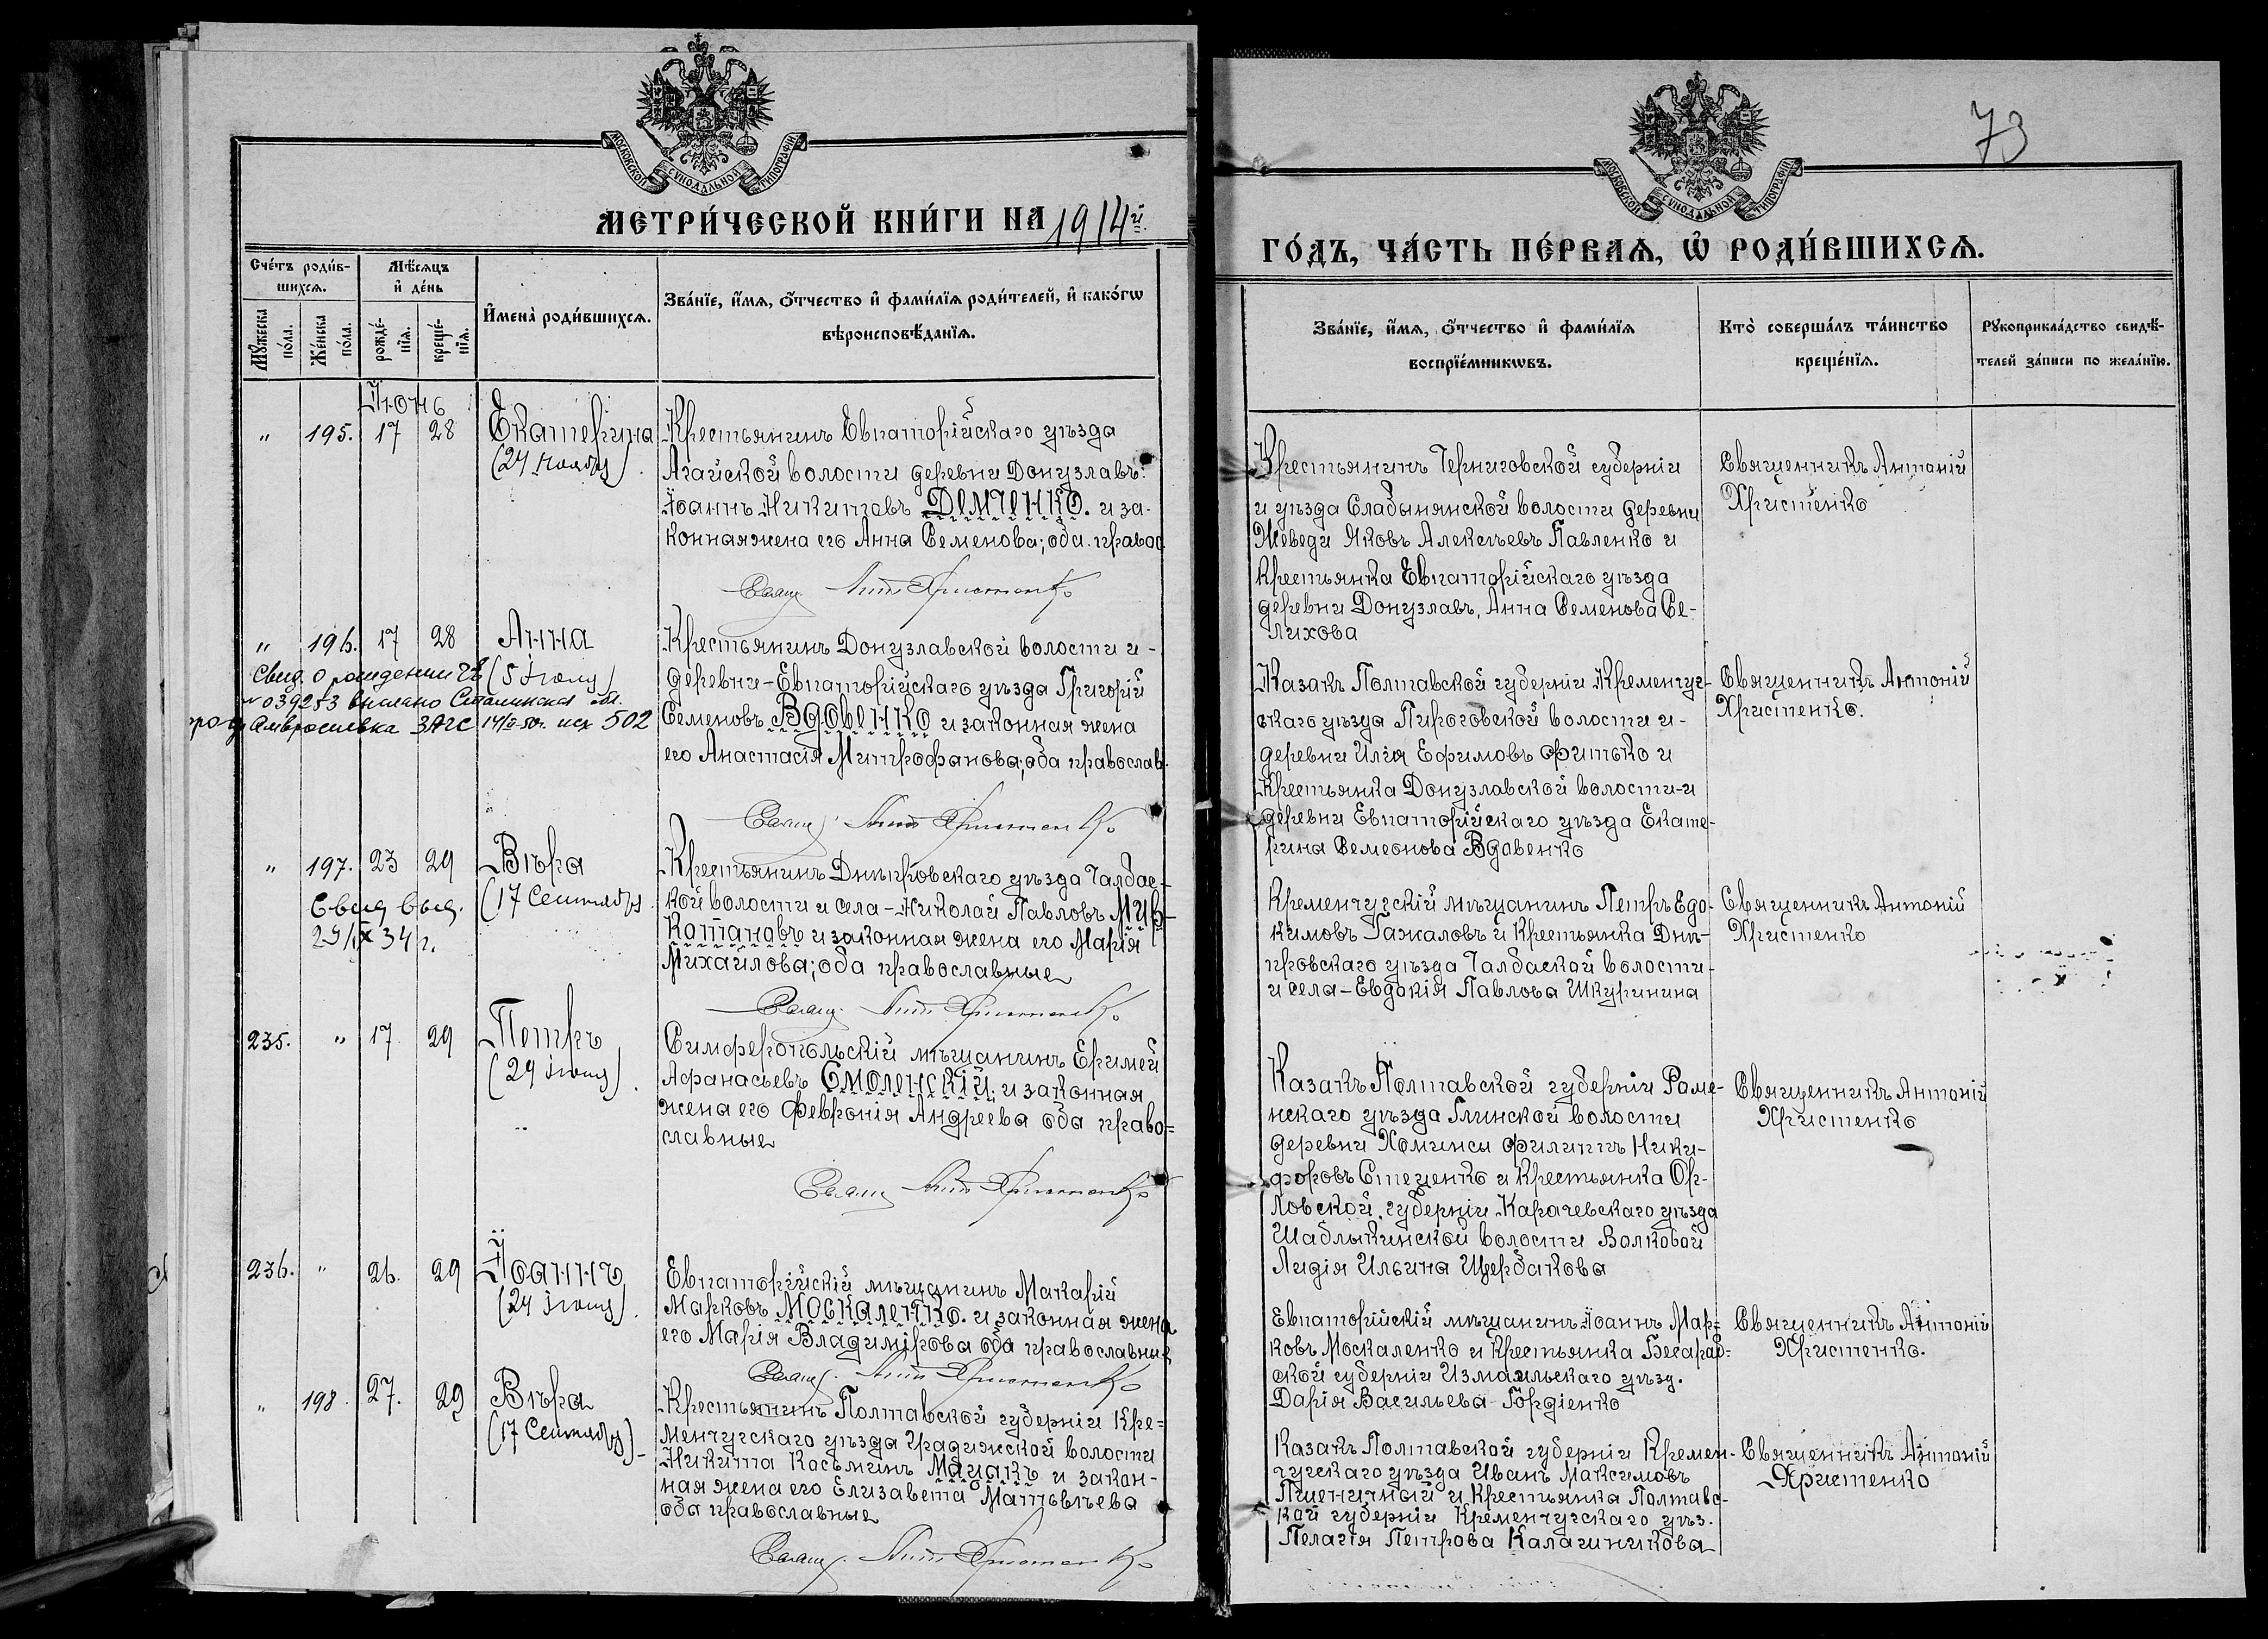 МОСКОВСКОЙ СѴНОДАЛЬНОЙ ТИПОГРАФІИ
МЕТРИ́ЧЕСКОЙ КНИ́ГИ НА 1914й
Сче́тъ роди́в-
шихсѧ.
Мѣ́сѧцъ
и҆ де́нь
Мꙋ́жеска
по́ла.
Же́нска
по́ла.
рожде́-
нїѧ.
креще́-
нїѧ.
И҆мена̀ роди́вшихсѧ.
Зва́нїе, и҆́мѧ, ѻ҆́тчество и҆ фами́лїѧ роди́телей, и҆ како́гѡ
вѣроисповѣ́данїѧ.
Іюнь
" 195. 17 28 Екатерина
(24 ноября)
Крестьянинъ Евпаторійскаго уѣзда
Агайской волости деревни Донузлавъ:
Іоаннъ Никитовъ ДЕМЧЕНКО. и за-
конная жена его Анна Семенова; оба правос
Свящ. Ант Христенко
" 196. 17 28 Анна
(5 Іюня)
Свид. о рождении ЧВ
№ 039253 выслано Сталинская обл.
Амвросиевка ЗАГС 14/II-50г. исх 502
Крестьянинъ Донузлавской волости и -
деревни - Евпаторійскаго уѣзда Григорій
Семеновъ Вдовенко и законная жена
его Анастасія Митрофанова, оба православ.
Свящ. Ант Христенко
" 197. 23 29 Вѣра
(17 Сентября
Свид выд.
29/IX 34 г.
Крестьянинъ Днѣпровскаго уѣзда Чалбас-
кой волости и села - Николай Павловъ Мир-
котановъ и законная жена его Марія
Михайлова; оба православные
Свящ. Ант Христенко
235. " 17 29 Петръ
(29 іюня)
Симферопольскій мѣщанинъ Еримей
Афанасьевъ Смоленскій, и законная
жена его Февронія Андреева оба право=
славные
Свящ Ант Христенко
236. " 26. 29 Іоаннъ
(24 іюня)
Евпаторійскій мѣщанинъ Макарій
Марковъ Москаленко. и законная жена
его Марія Владимірова оба православные
Свящ. Ант Христенко
" 198. 27. 29 Вѣра
(17 Сентября) -
Крестьянинъ Полтавской губерніи Кре=
менчугскаго уѣзда Градижской волости
Никита Косьминъ Мацакъ и закон-
ная жена его Елизавета Матовѣева
оба православные
Свящ. Ант Христенко
73
МОСКОВСКОЙ СѴНОДАЛЬНОЙ ТИПОГРАФІИ
ГО́ДЪ, ЧА́СТЬ ПЕ́РВАѦ, Ѽ РОДИ́ВШИХСѦ.
Зва́нїе, и҆́мѧ, ѻ҆́тчество и҆ фами́лїѧ
воспрїе́мникѡвъ.
Кто̀ соверша́лъ та́инство
креще́нїѧ.
Рꙋкоприкла́дство свидѣ́-
телей за́писи по жела́нїю.
Крестьянинъ Черниговской губерніи
и уѣзда Слабынянской волости деревни
Жеведи Яковъ Алексѣевъ Павленко и
крестьянка Евпаторійскаго уѣзда
деревни Донузлавъ, Анна Семенова Се-
лихова
Священникъ Антоній
Христенко
Казакъ Полтавской губерніи Кременчуг-
скаго уѣзда Пироговской волости и -
деревни Илія Ефимовъ Фитько и
крестьянка Донузлавской волости-и
деревни Евпаторійскаго уѣзда Екате-
рина Семеонова Вдовенко
Священникъ Антоній
Христенко.
Кременчугскій мѣщанинъ Петръ Едо-
кимовъ Гажаловъ и крестьянка Днѣ-
провскаго уѣзда Чалбаской волости -
и села - Евдокія Павлова Шкуринина
Священникъ Антоній
Христенко
Казакъ Полтавской губерніи Роме-
нскаго уѣзда Глинской волости
деревни Хоминсы Филиппъ Ники-
форовъ Стеценко и крестьянка Ор-
ловской губерніи Карачевскаго уѣзда
Шаблыкинской волости Волковой
Лидія Ильина Щербакова
Священникъ Антоній
Христенко
Евпаторійскій мѣщанинъ Іоаннъ Мар=
ковъ Москаленко и крестьянка Бесараб=
ской губерніи Измаильскаго уѣзд.
Дарія Васильева Гордіенко
Священникъ Антоній
Христенко.
Казакъ Полтавской губерніи Кремен-
чугскаго уѣзда Иванъ Максимовъ
Пшеничный и крестьянка Полтавс-
кой губерніи Кременчугскаго уѣз.
Пелагія Петрова Калашникова
Священникъ Антоній
Христенко